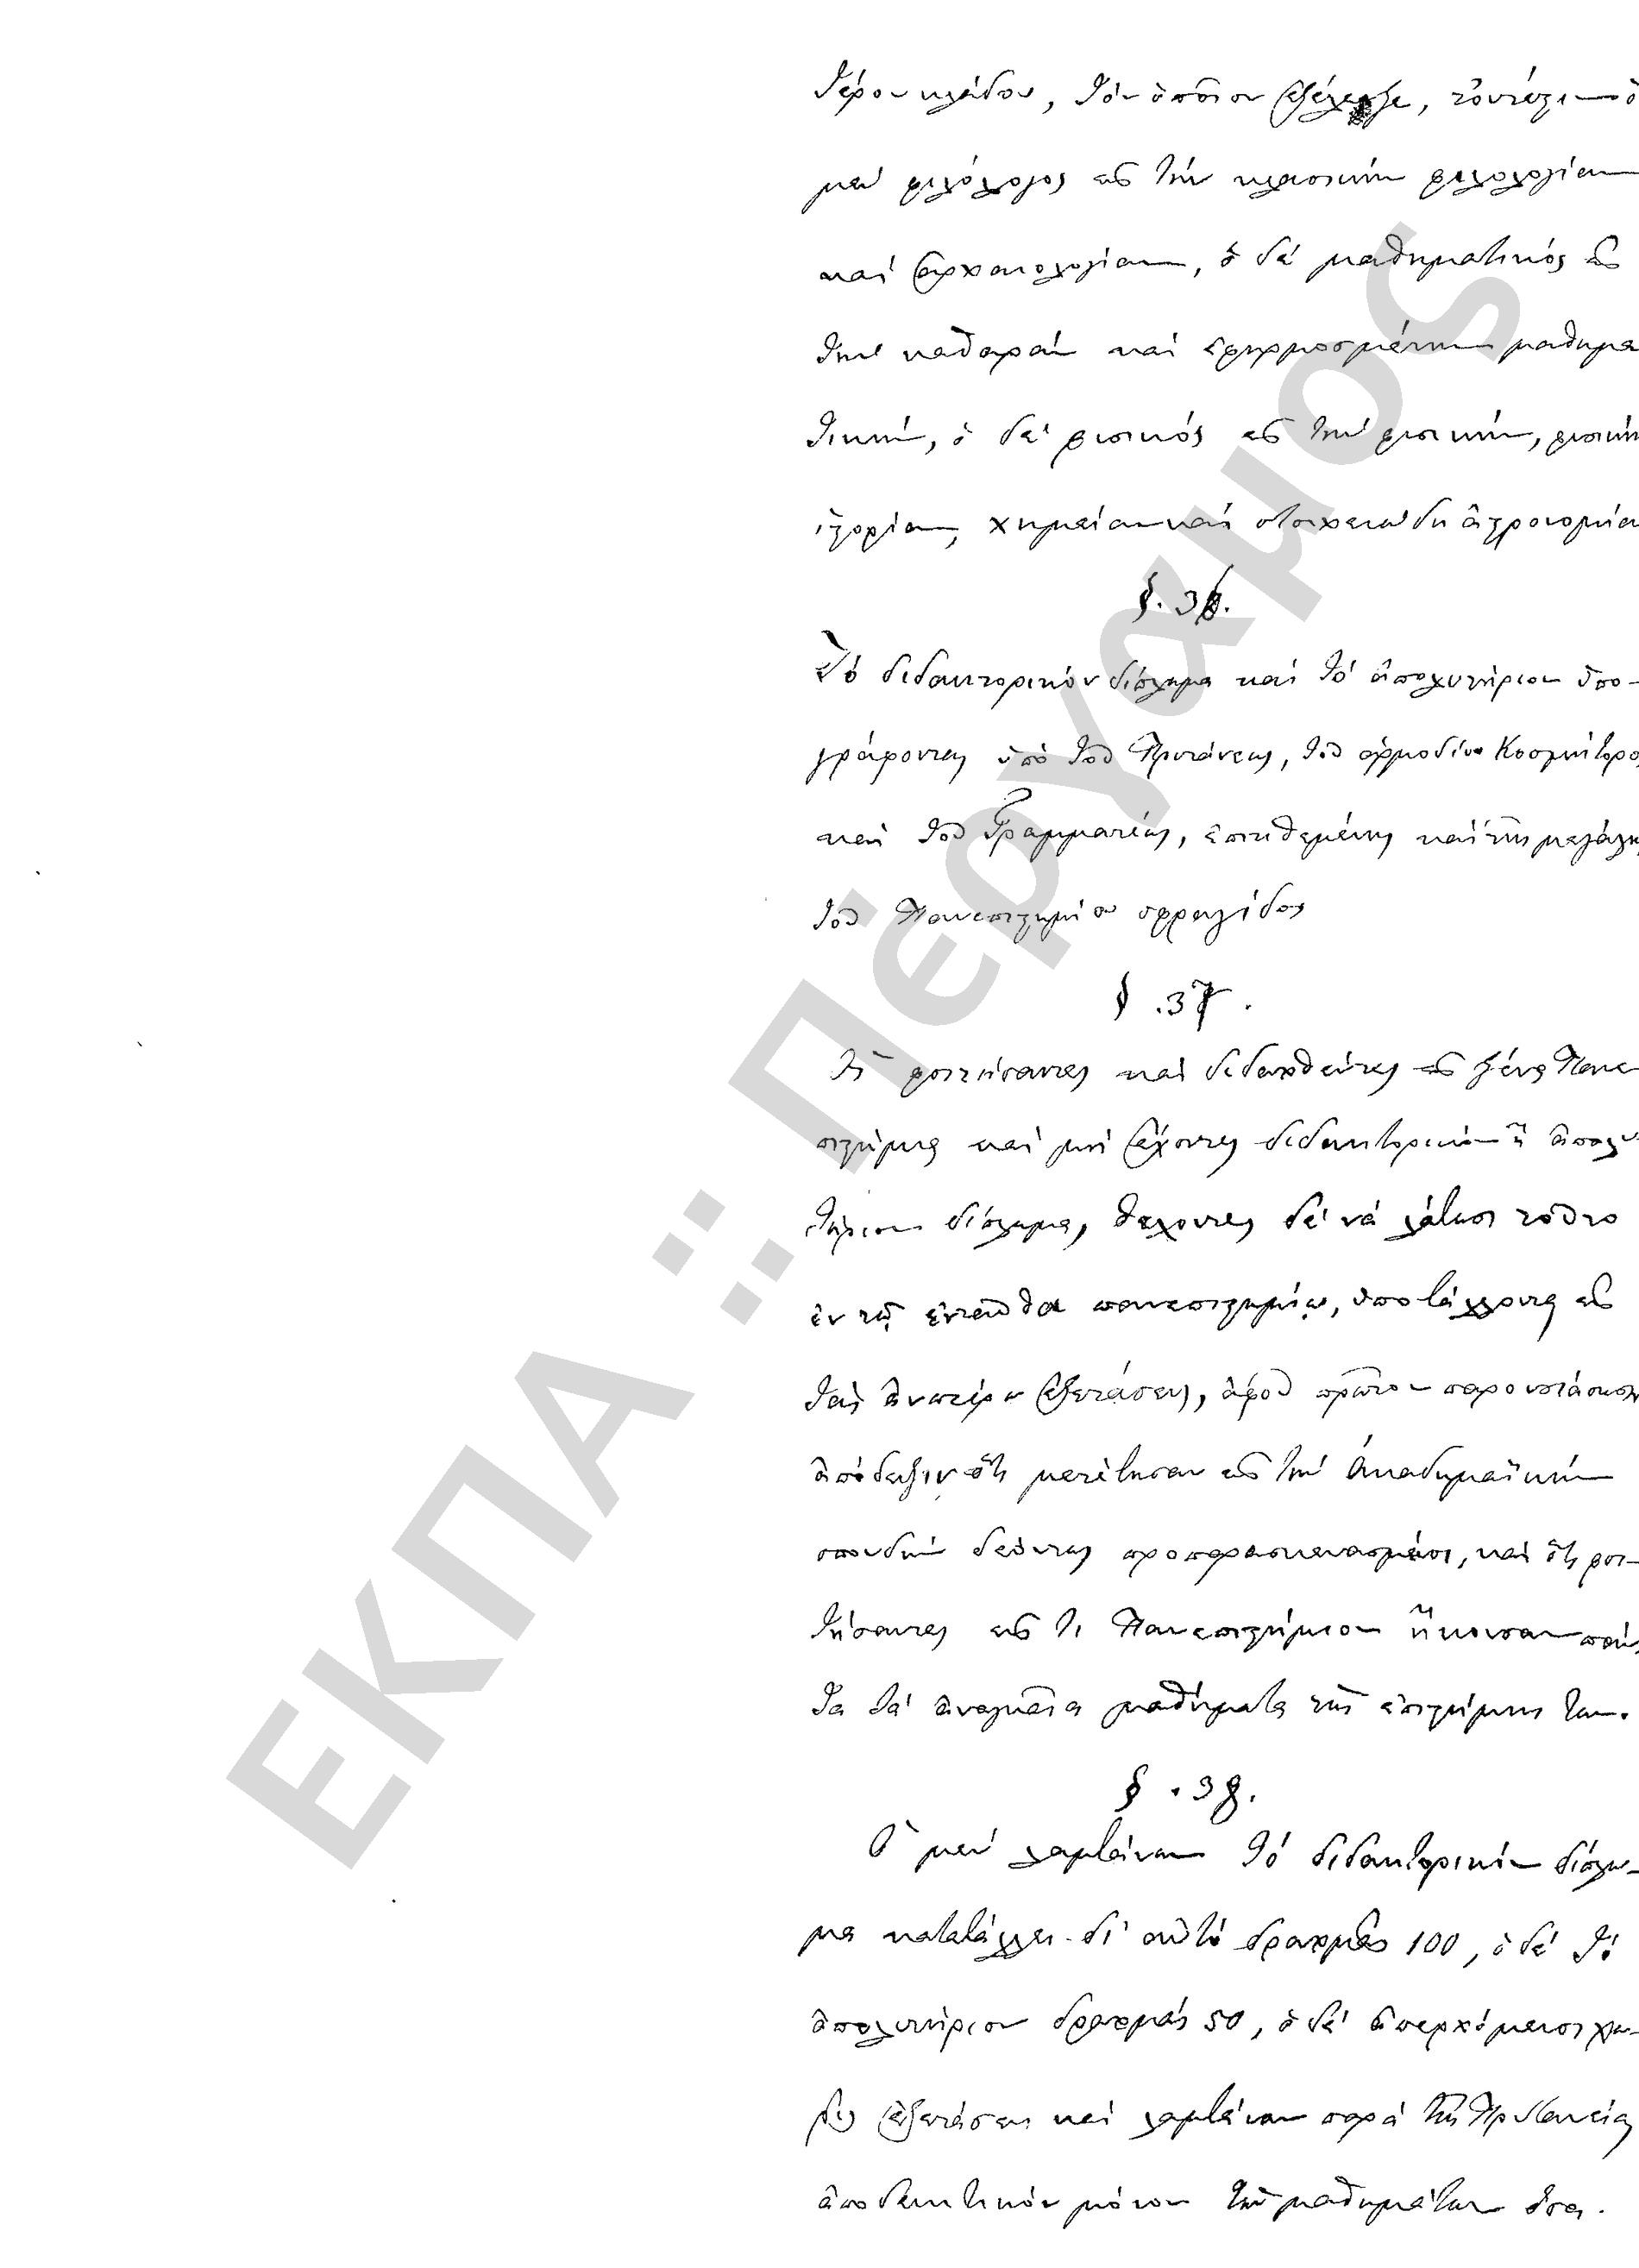 τερον κλάδον, τὸν ὁποῖον ἐξέλεξε, τουτέστιν ὁ
μὲν φιλόλογος εἰς τὴν κλασικὴν φιλολογίαν
καὶ ἀρχαιολογίαν, ὁ δὲ μαθηματικός εἰς
τὴν καθαρὰν καὶ ἐφηρμοσμένην μαθημα
τικήν, ὁ δὲ φυσικός εἰς τὴν φυσικήν, φυσικὴν
ἱστορίαν, χημείαν καὶ στοιχειώδη ἀστρονομίαν
§. 36.
Τὸ διδακτορικὸν δίπλωμα καὶ τὸ ἀπολυτήριον ὑπο-
γράφονται ὑπὸ τοῦ Πρυτάνεως, τοῦ ἁρμοδίου Κοσμήτορος
καὶ τοῦ Γραμματέως, ἐπιτιθεμένης καὶ τῆς μεγάλης
τοῦ Πανεπιστημίου σφραγίδος
§ .37.
Οἱ φοιτήσαντες καὶ διδαχθέντες εἰς ξένα Πανε
πιστήμια καὶ μὴ ἔχοντες διδακτορικὸν ἢ ἀπολυ
τήριον δίπλωμα, θέλοντες δὲ νὰ λάβωσι τοῦτο
ἐν τῷ ἐνταῦθα πανεπιστημίῳ, ὑποβάλλονται εἰς
τὰς ἀνωτέρω ἐξετάσεις, ἀφοῦ πρῶτον παρουσιάσωσιν
ἀπόδειξιν ὅτι μετέβησαν εἰς τὴν Ἀκαδημαϊκὴν
σπουδὴν δεόντως προπαρασκευασμένοι, καὶ ὅτι φοι-
τήσαντες εἰς τι Πανεπιστήμιον ἤκουσαν πάν
τα τὰ ἀναγκαῖα μαθήματα τῆς ἐπιστήμης των.
§ .38.
Ὁ μὲν λαμβάνων τὸ διδακτορικὸν δίπλω-
μα καταβάλλει δι' αὐτὸ δραχμὰς 100, ὁ δὲ τὸ
ἀπολυτήριον δραχμὰς 50, ὁ δὲ ἀπερχόμενος χω-
ρὶς ἐξετάσεως καὶ λαμβάνων παρὰ τῆς Πρυτανείας
ἀποδεικτικὸν μόνον τῶν μαθημάτων ὅσα.
ΕΚΠΑ :: Πέργαμος